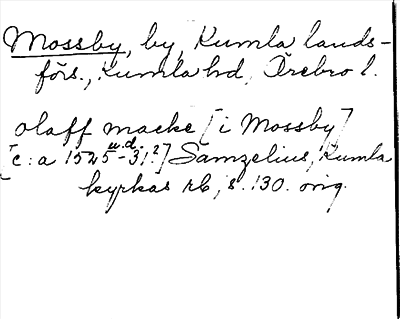 Mossby, by, Kumla lands-
förs., Kumla hd, Örebro l.
olaff macke [i Mossby]
u.d.
[c:a 1525-31?] Samzelius, Kumla
kyrkas rb, s. 130. orig.